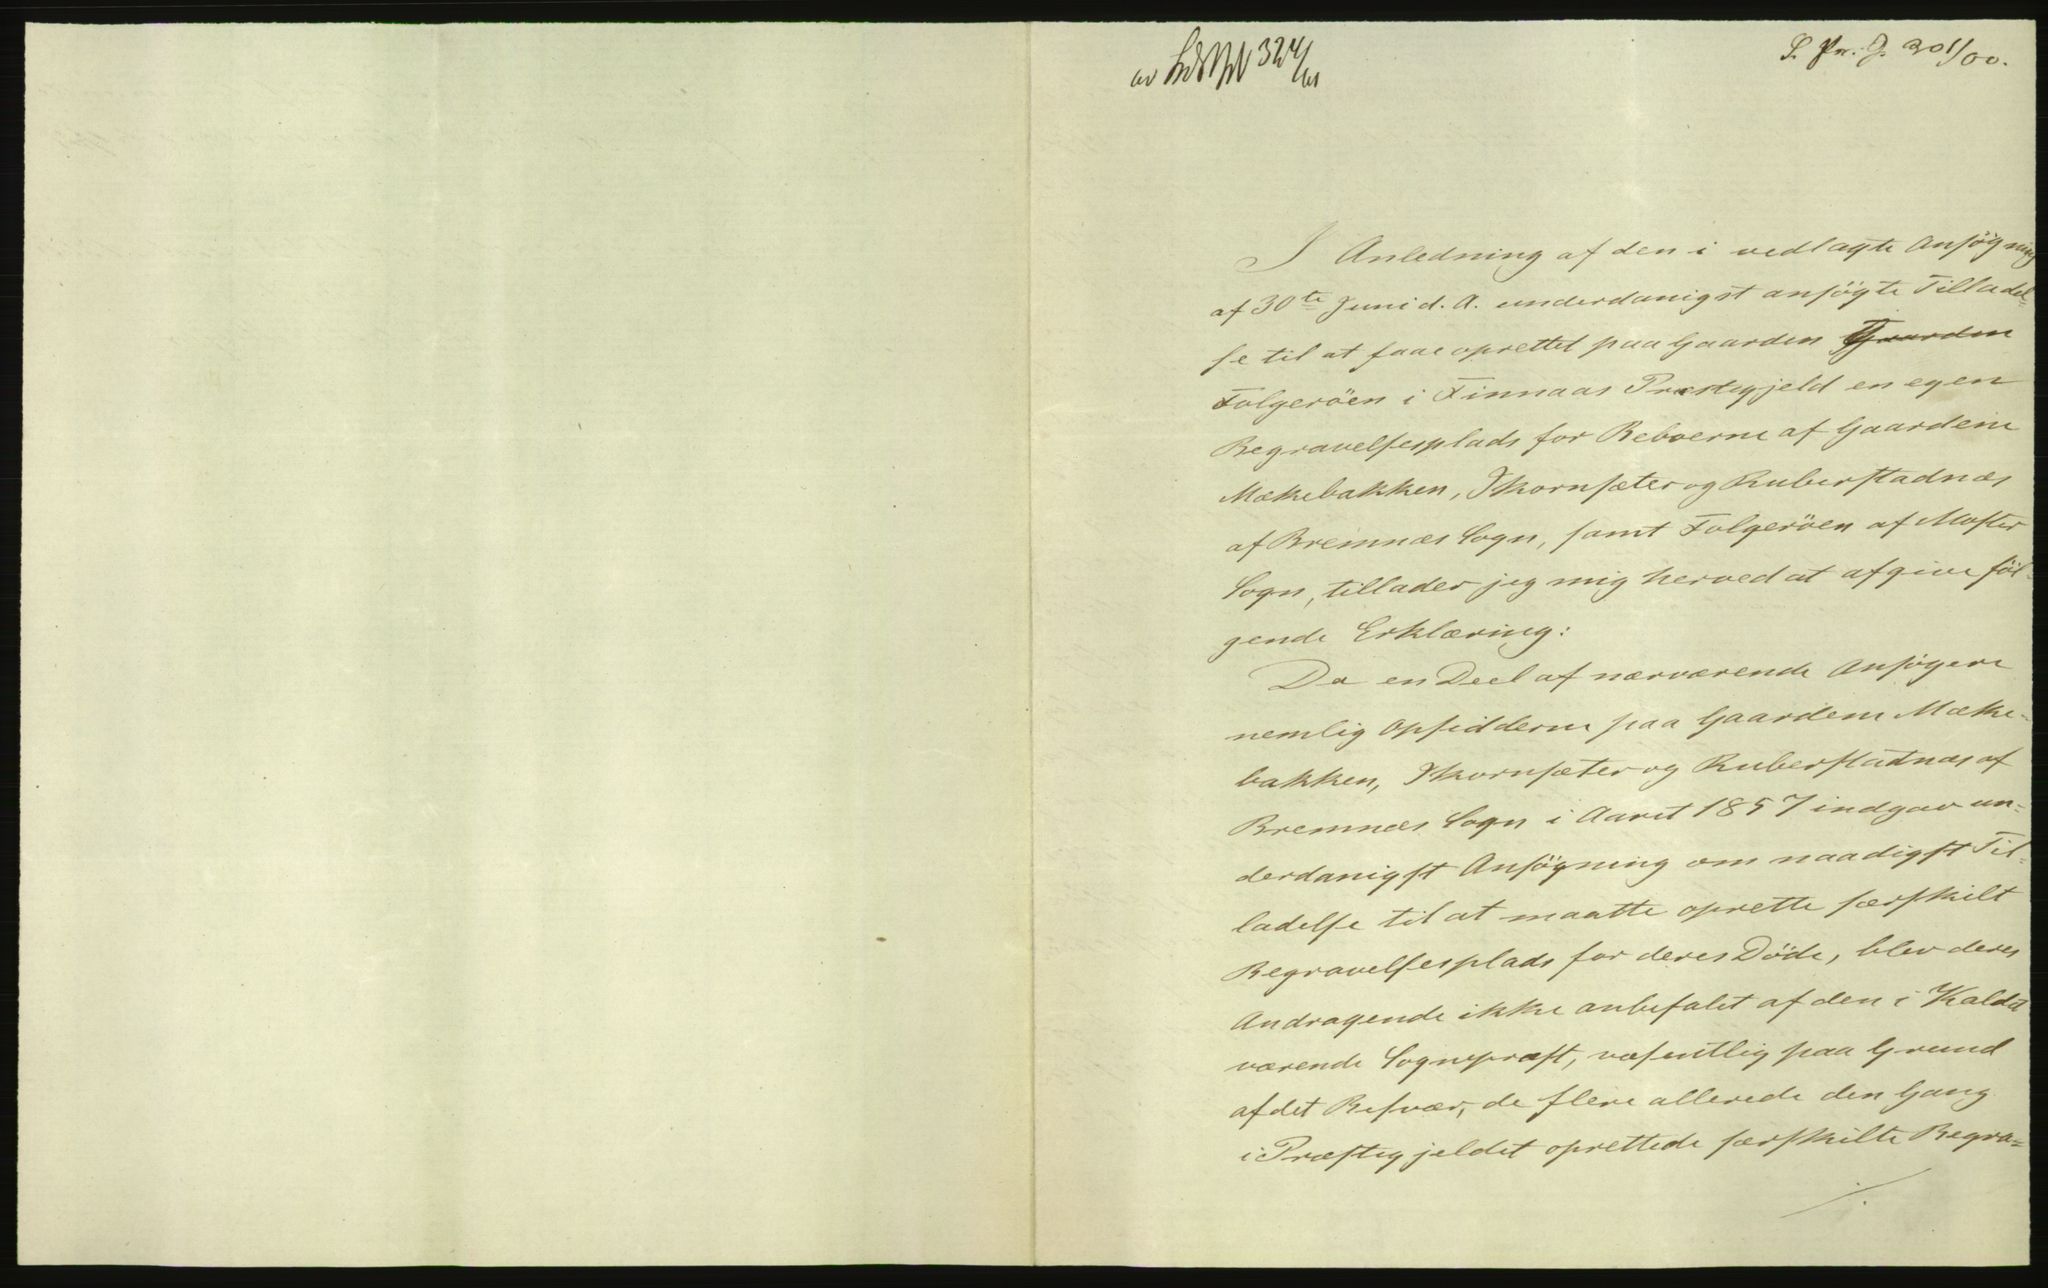 S. Pr. J. 301/00.
I Anledning af den i vedlagte Ansøgning
af 30te Juni d. A. underdanigst ansøgte Tilladel-
se til at faae oprettet paa Gaarden Gaarden
Folgerøen i Finnaas Præstegjeld en egen
Begravelsesplads for Beboerne af Gaardene
Mækebakken, Skornsæter og Rubestadnæs
af Bremnæs Sogn, samt Folgerøen af Moster
Sogn, tillader jeg mig herved at afgive føl-
gende Erklæring:
Da en Deel af nærværende Ansøgere
nemlig Opsidderne paa Gaardene Mæke-
bakken, Skornsæter og Ruberstadnæs af
Bremnæs Sogn i Aaret 1857 indgav un-
derdanigst Ansøgning om naadigst Til-
ladelse til at maatte oprette særskilt
Begravelsesplads for deres Døde, blev deres
Andragende ikke anbefalet af den i Kaldet
værende Sognepræst, væsentlig paa Grund
af det Besvær, de flere allerede den Gang
i Præstegjeldet oprettede særskilte Begra-